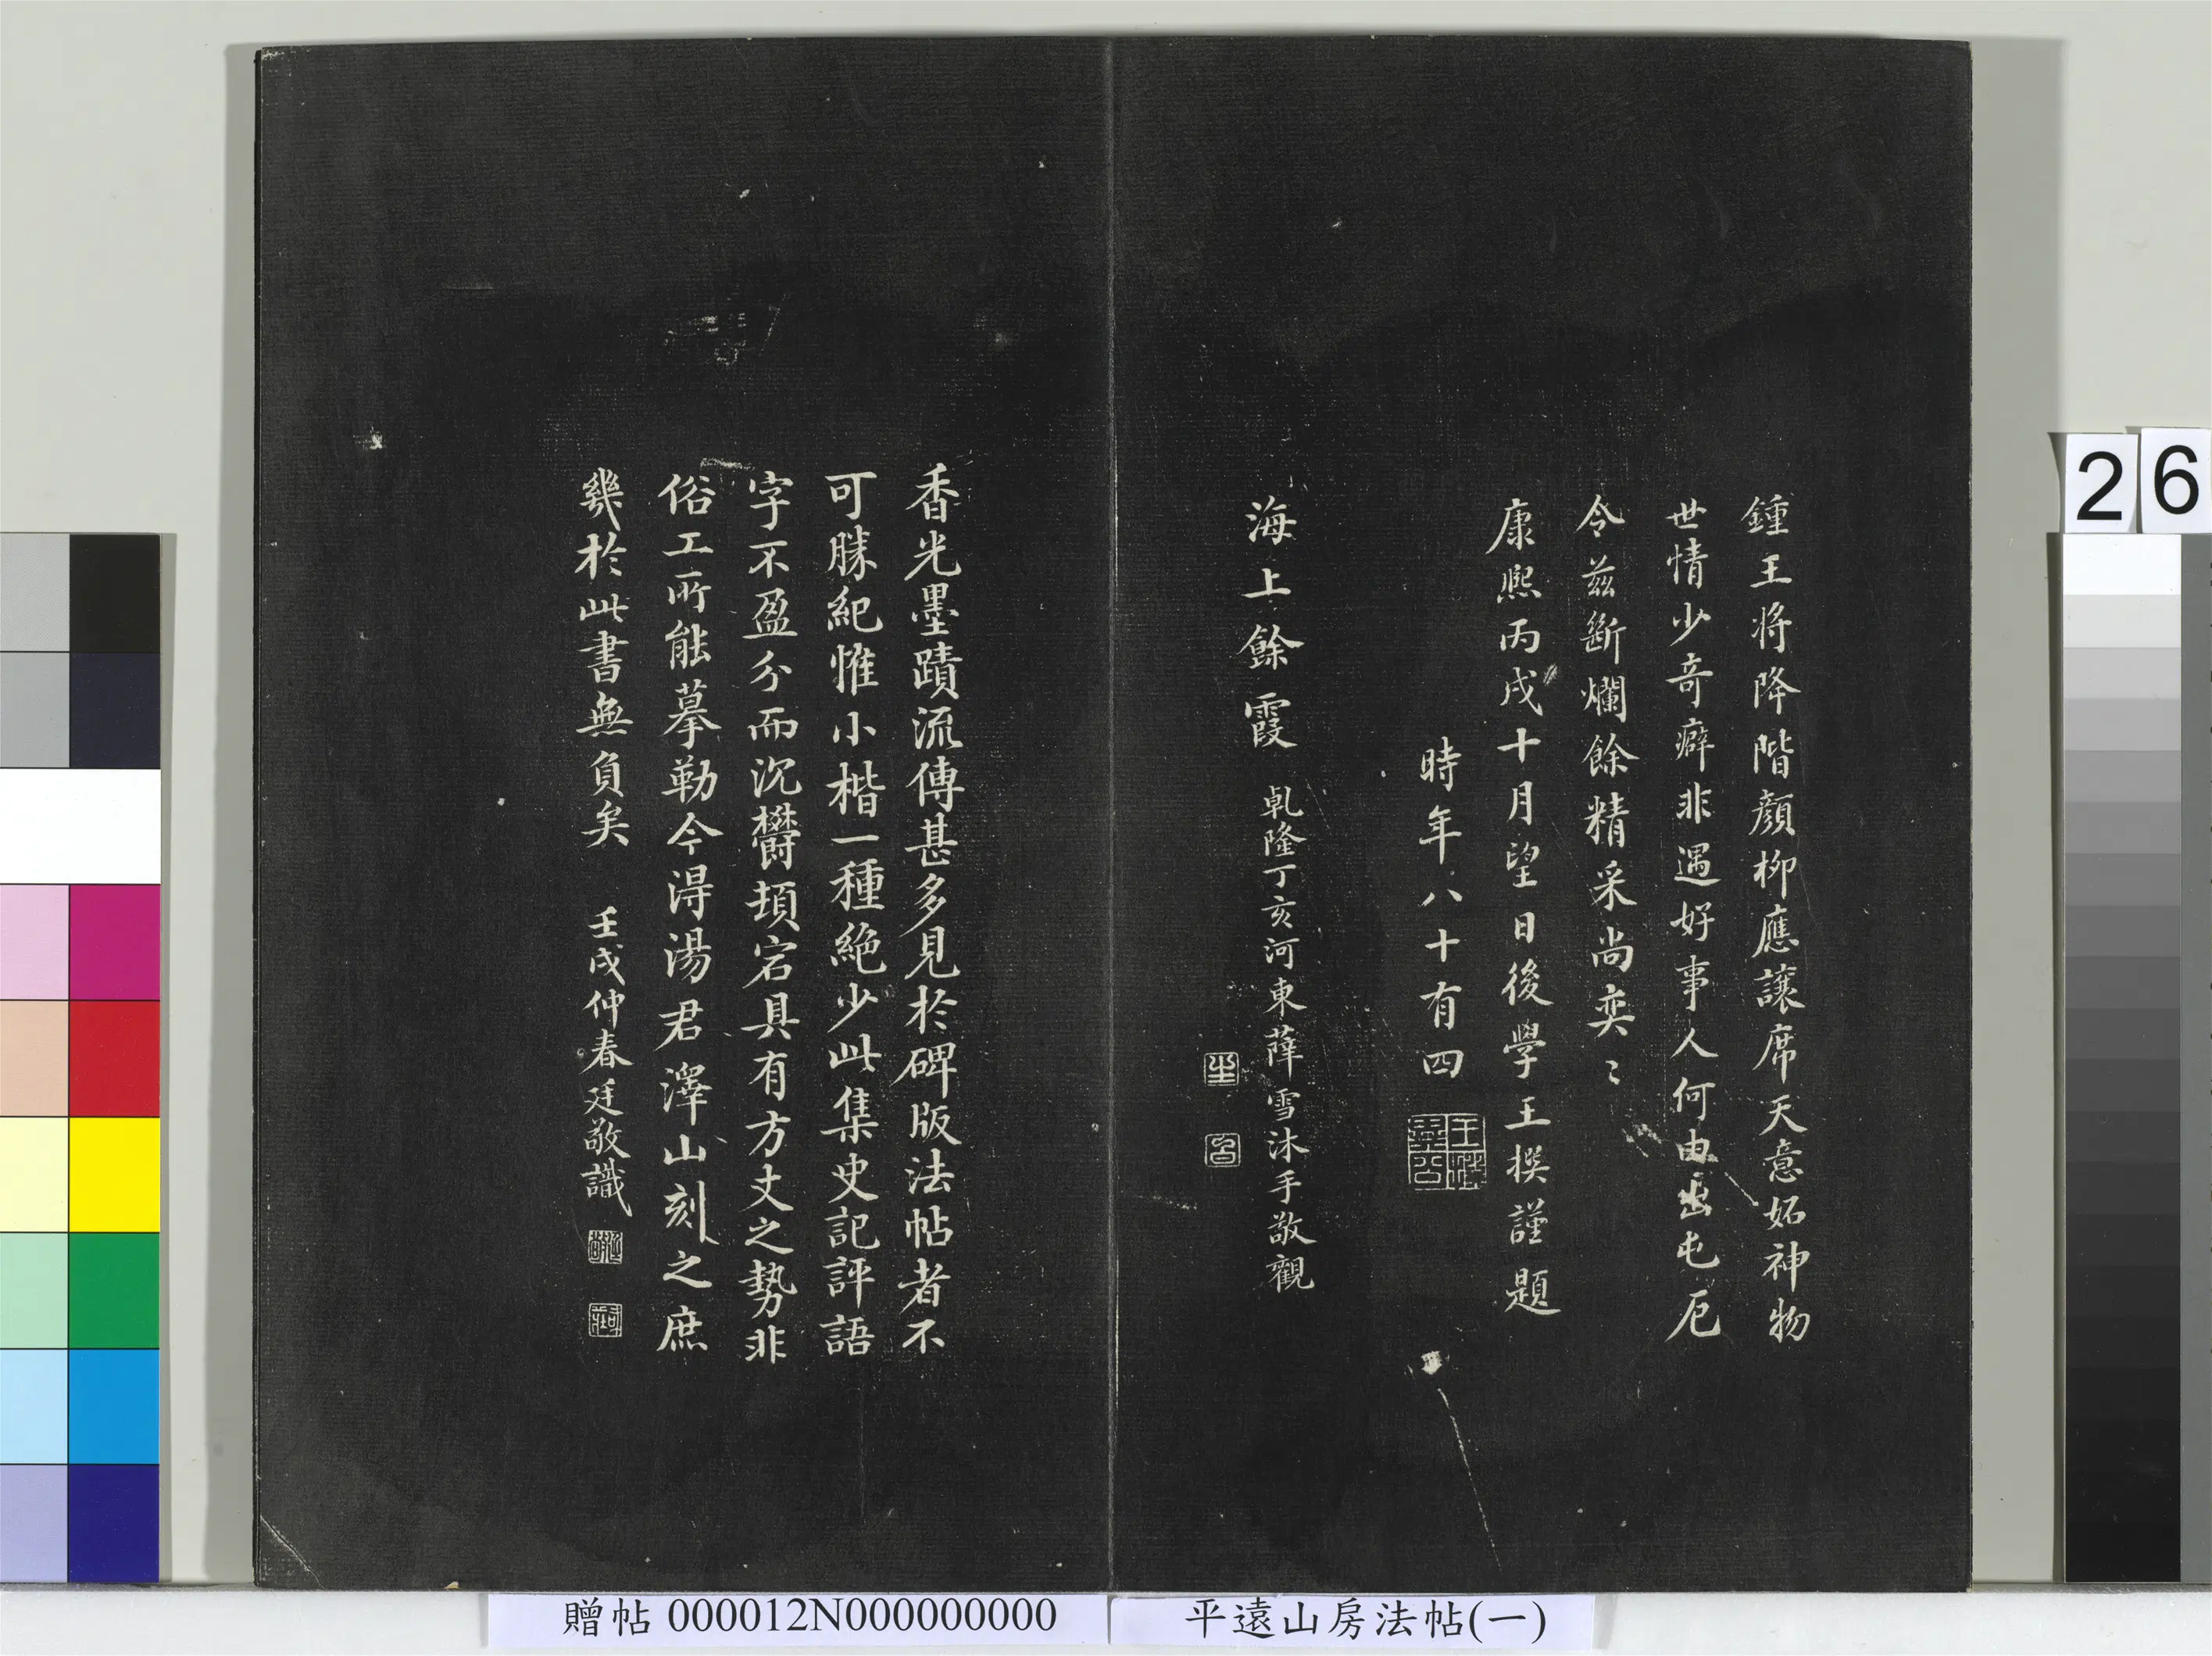 鍾王将降階顏柳應讓席天意妬神物
世情少奇癖非遇好事人何由出屯厄
今茲斷爛餘精采尚奕〻
康熙丙戌十月望日後學王撰謹題
時年八十有四
海上餘霞
乹隆丁亥河東薛雪沐手敬觀
香光墨蹟流傳甚多見於碑版法帖者不
可勝紀惟小楷一種絶少此集史記評語
字不盈分而沉欝頓宕具有方丈之勢非
俗工所能摹勒今得湯君澤山刻之庶
幾於此書無負矣
壬戌仲春廷敬識
26
贈帖 000012N000000000
平遠山房法帖(一)